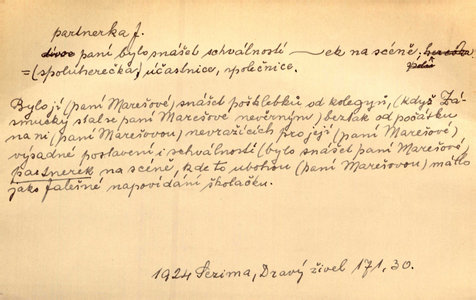 partnerka f.
paní bylo snášet schválností — ek na scéně
= (spoluherečka), účastnice, společnice.
Bylo jí (paní Marešové) snášet pošklebků od kolegyň, (když Zá-
smucký stal se paní Marešové nevěrným) beztak od počátku
na ni (paní Marešovou) nevražících pro její (paní Marešové)
výsadné postavení i schválností (bylo snášet paní Marešové)
partnerek na scéně, kde to ubohou (paní Marešovou) mátlo
jako falešné napovídání školačku.
1924 Sezima, Dravý živel 171, 30.